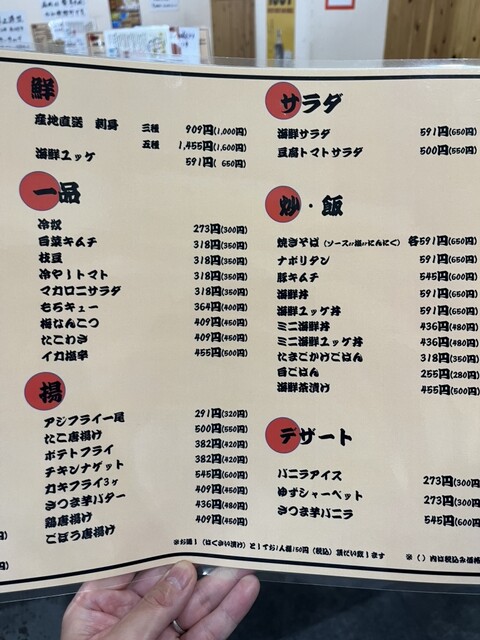 鮮
産地直送 刺身 三種 909円(1,000円)
五種 1,455円(1,600円)
海鮮ユッケ 591円( 650円)
一品
冷奴 273円(300円)
白菜キムチ 318円(350円)
枝豆 318円(350円)
冷や!トマト 318円(350円)
マカロニサラダ 318円(350円)
もろキュー 364円(400円)
梅なんこつ 409円(450円)
たこわさ 409円(450円)
イカ塩辛 455円(500円)
揚
アジフライ一尾 291円(320円)
たこ唐揚げ 500円(550円)
ポテトフライ 382円(420円)
チキンナゲット 382円(420円)
カキフライ3ヶ 545円(600円)
さつま芋バター 409円(450円)
鶏唐揚げ 436円(480円)
ごぼう唐揚げ 409円(450円)
サラダ
海鮮サラダ 591円(650円)
豆腐トマトサラダ 500円(550円)
炒・飯
焼きそば (ソースor塩orにんにく) 各591円(650円)
ナポリタン 591円(650円)
豚キムチ 545円(600円)
海鮮丼 591円(650円)
海鮮ユッケ丼 591円(650円)
ミニ海鮮丼 436円(480円)
ミニ海鮮ユッケ丼 436円(480円)
たまごかけごはん 318円(350円)
白ごはん 255円(280円)
海鮮茶漬け 455円(500円)
デザート
バニラアイス 273円(300円
ゆずシャーベット 273円(300円
さつま芋バニラ 545円(600円
※お通し (はくさい漬け) として お1人様150円 (税込) 頂だいします
※ ( ) 内は税込み価格